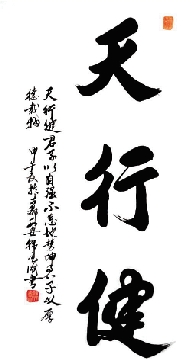 天行健
天行健君子以自强不息地势坤君子以厚
德载物